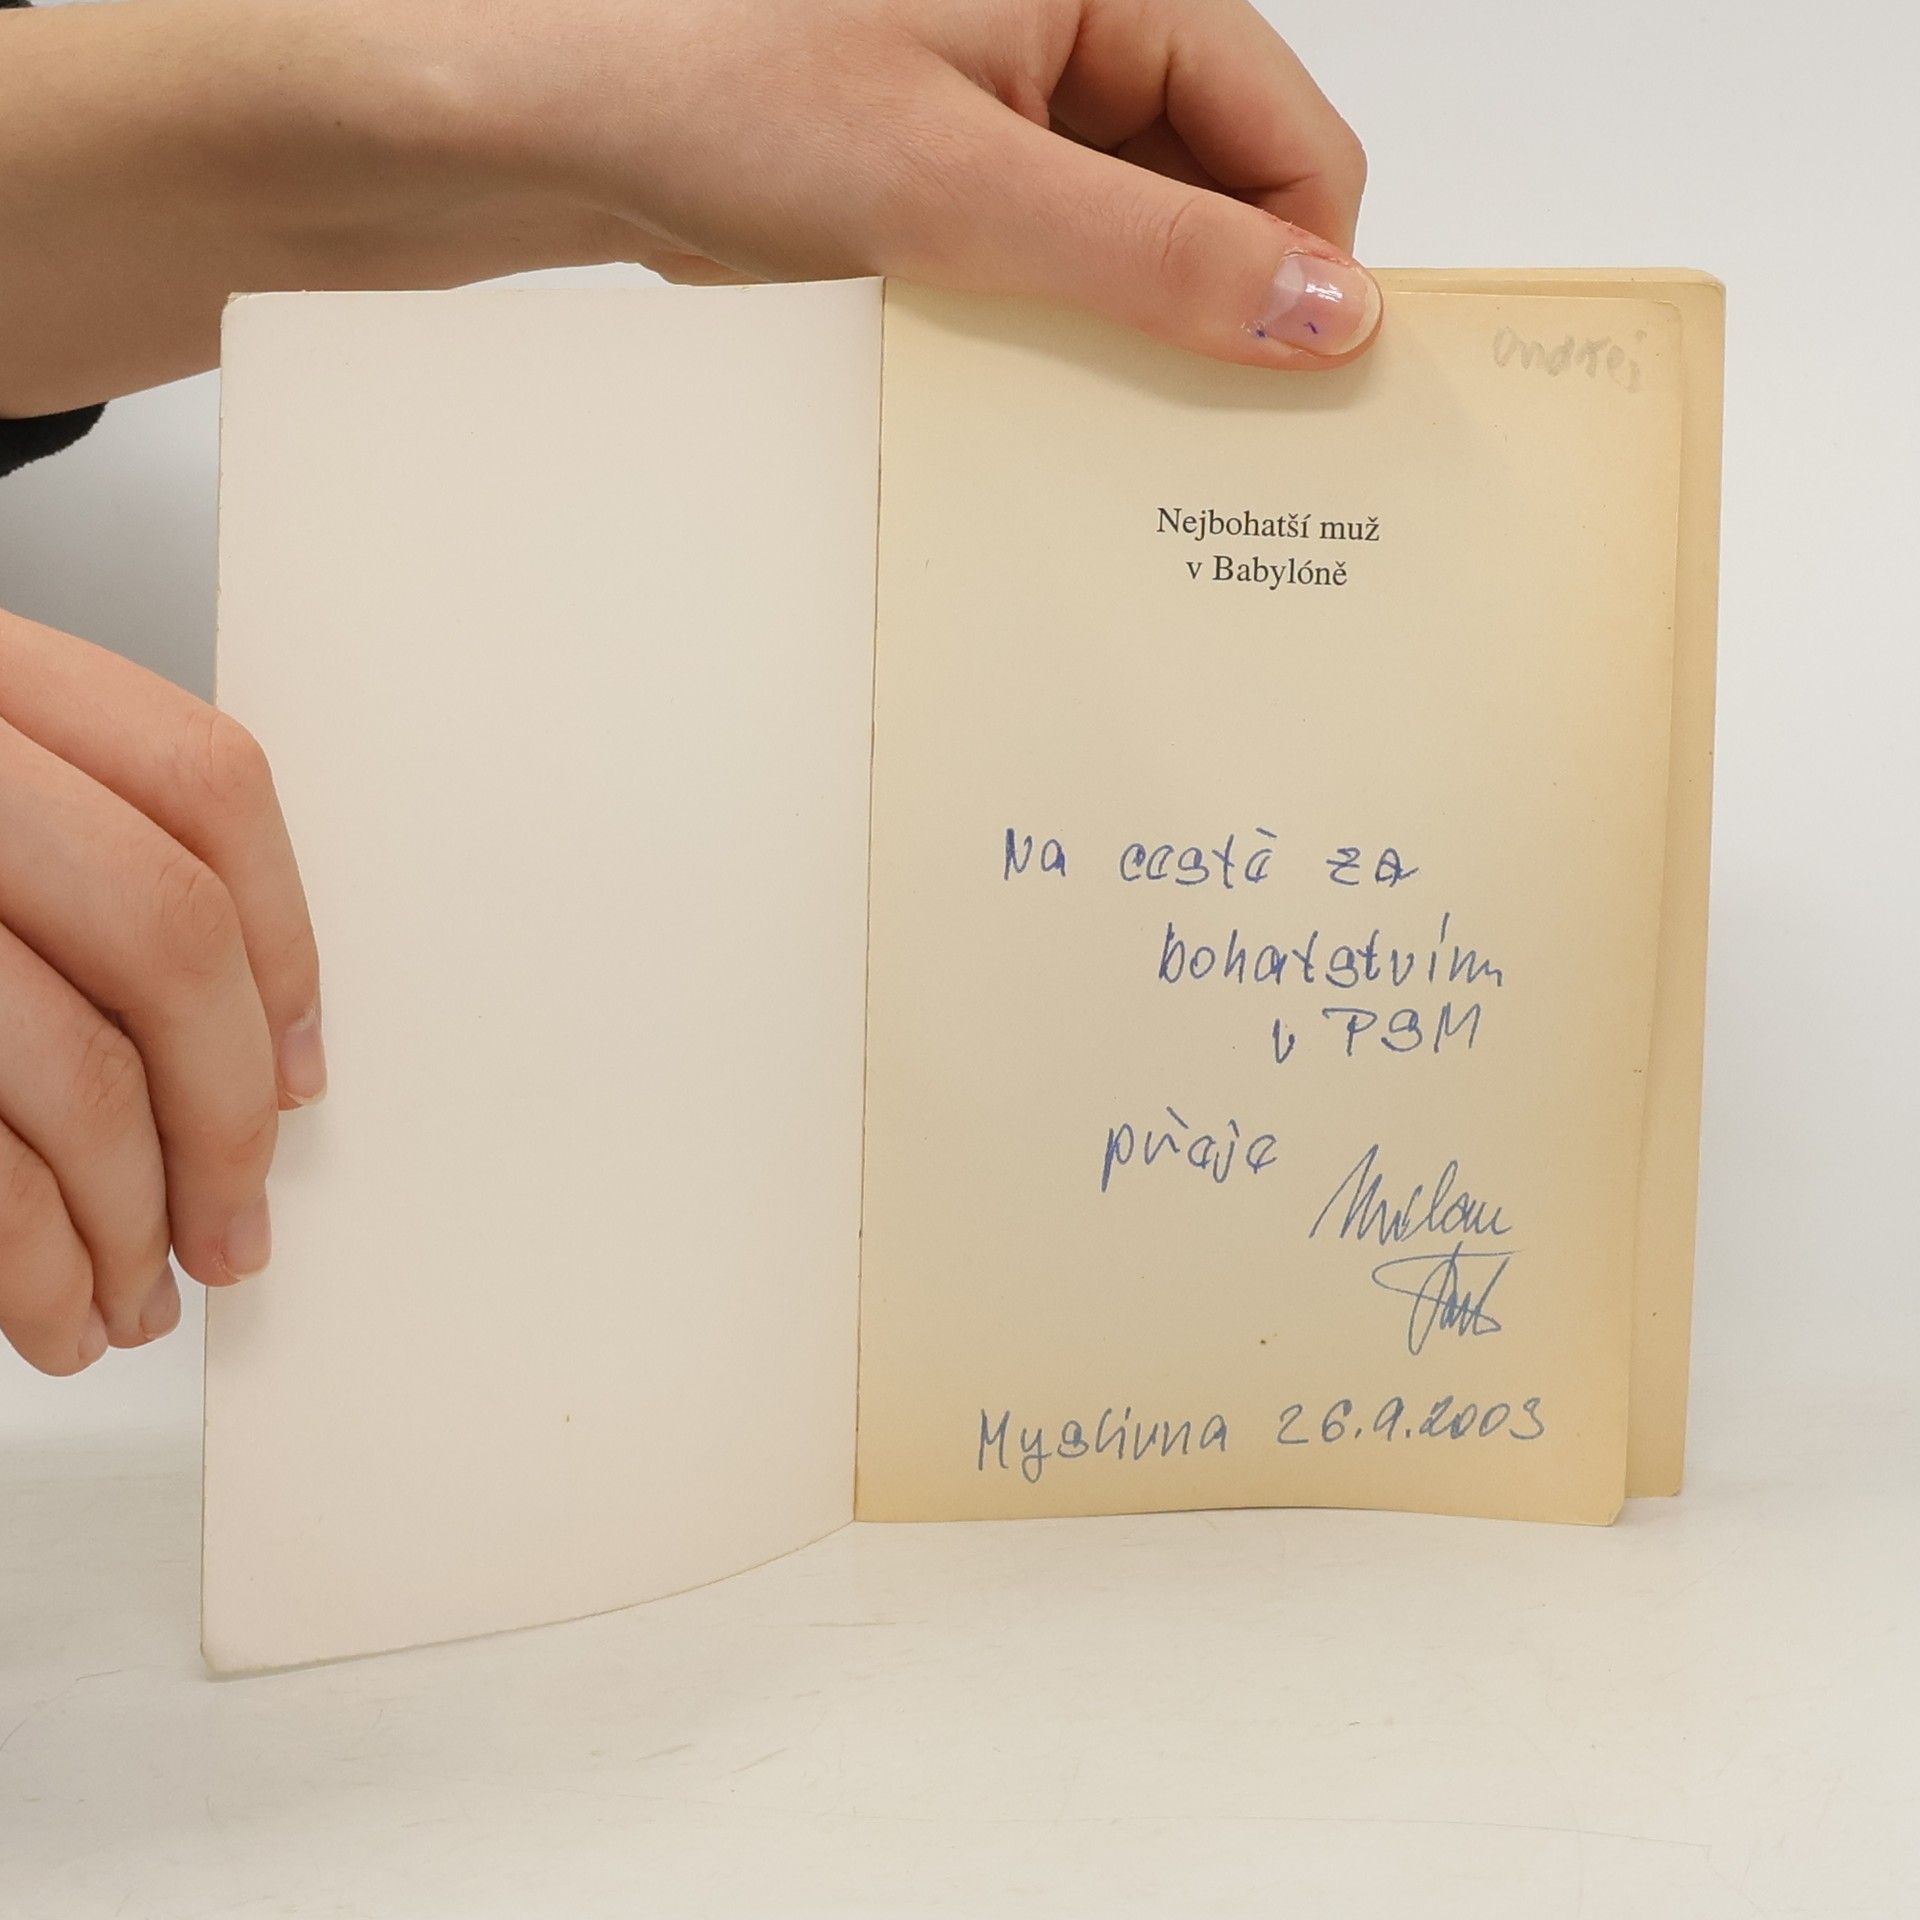 Ondřej
Nejbohatší muž
v Babylóně
Na cestě za
bohatstvím
v PSM
přeje
Milan
Myslivna 26.9.2003